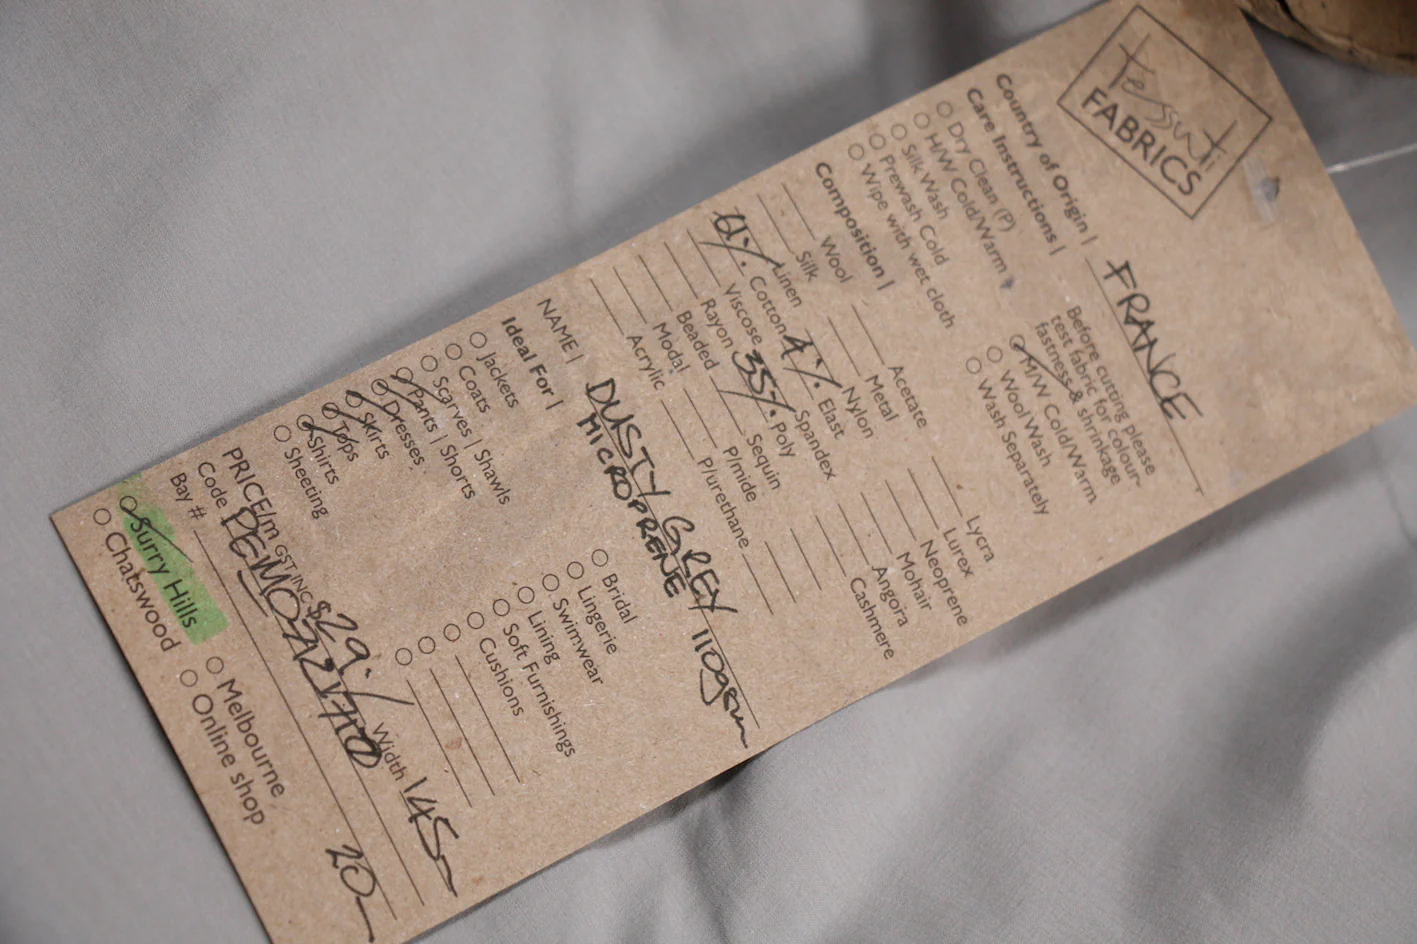 tessuti
FABRICS
Country of Origin | FRANCE
Care Instructions |
Dry Clean (P)
H/W Cold/Warm
Silk Wash
Prewash Cold
Wipe with wet cloth
Before cutting please
test fabric for colour-
fastness & shrinkage
M/W Cold/Warm
Wool Wash
Wash Separately
Composition |
Wool
Silk
Linen
61% Cotton
Viscose
Rayon
Beaded
Modal
Acrylic
Acetate
Metal
Nylon
4% Elast
Spandex
35% Poly
Sequin
P/mide
P/urethane
Lycra
Lurex
Neoprene
Mohair
Angora
Cashmere
NAME | DUSTY GREY 110gsm
MICROPRENE
Ideal For |
Jackets
Coats
Scarves | Shawls
Pants | Shorts
Dresses
Skirts
Tops
Shirts
Sheeting
Bridal
Lingerie
Swimwear
Lining
Soft Furnishings
Cushions
PRICE/m GST INC $29.- Width 145
Code
Bay # 20
Surry Hills
Chatswood
Melbourne
Online shop